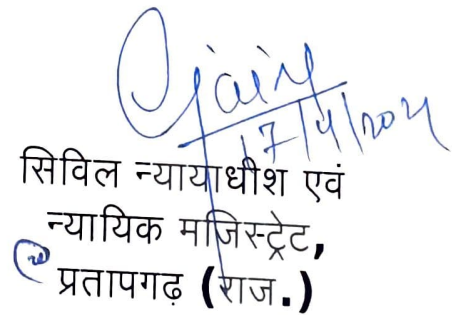 17/4/2024
सिविल न्यायाधीश एवं
न्यायिक मजिस्ट्रेट,
प्रतापगढ़ (राज.)